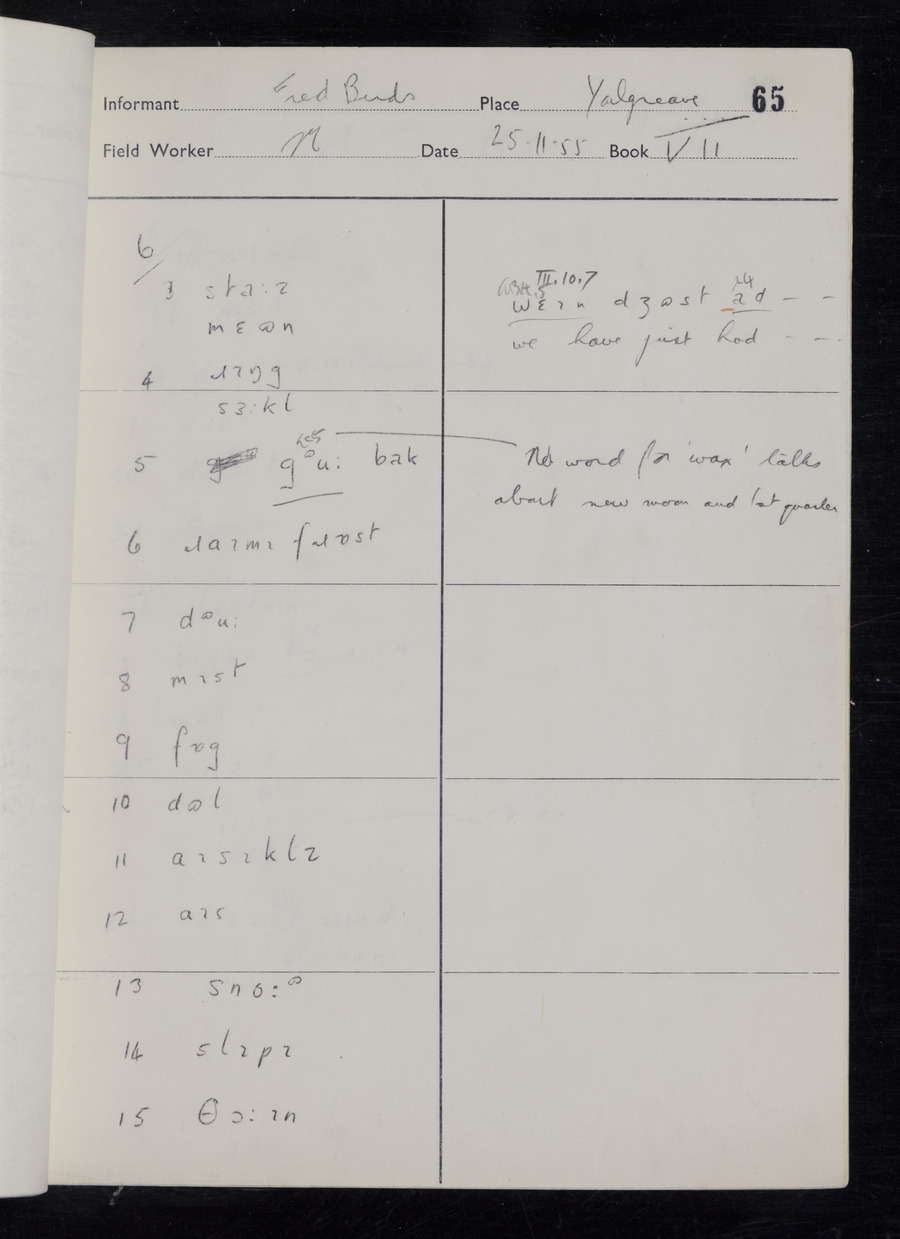 Informant Fred Birds Place Yolgreave 65
Field Worker Date 25·11·55 Book VII
6/
3 staːz
mɛən
4 ɹɪŋg
sɜːkl
5 gᵊuː bak
6 ɹaɪmɪ fɹɒst
7 dᵊuː
8 mɪst
9 fɒg
10 dəl
11 aɪsɪklz
12 aɪs
13 snoːᵊ
14 slɪpɪ
15 θɔːɪn
III.10.7
wɛɪn dʒəst ad – –
we have just had – –
No word for 'wax' talks
about new moon and last quarter